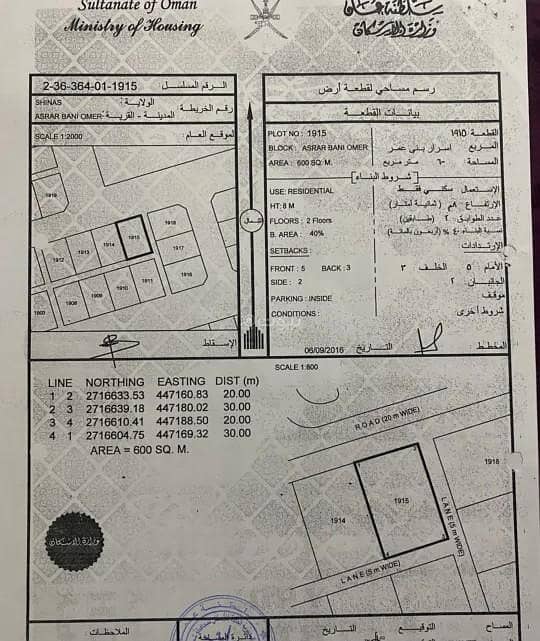 Sultanate of Oman
سلطنة عمان
Ministry of Housing
وزارة الإسكان
2-36-364-01-1915 الرقم المسلسل
SHINAS الولاية:
ASRAR BANI OMER المدينة - القرية: رقم الخريطة
SCALE 1:2000 الموقع العام:
1919
1918
1917
1915
1914
1913
1912
1911
1910
1909
1908
1900
الإسقاط
الشمال
رسم مساحي لقطعة أرض
بيانات القطعة
PLOT NO : 1915 القطعة ١٩١٥
BLOCK : ASRAR BANI OMER المربع اسرار بني عمر
AREA : 600 SQ. M. المساحة ٦٠٠ متر مربع
شروط البناء
USE: RESIDENTIAL الإستعمال سكني فقط
HT: 8 M الإرتفاع ٨م (ثمانية أمتار)
FLOORS : 2 Floors عدد الطوابق ٢ (طابقين)
B. AREA : 40% نسبة البناء ٤٠٪ (أربعون بالمائة)
SETBACKS: الإرتدادات
FRONT : 5 BACK : 3 الأمام ٥ الخلف ٣
SIDE : 2 الجانبان ٢
PARKING : INSIDE موقف
CONDITIONS : شروط أخرى
06/09/2016 التاريخ المخطط
SCALE 1:600
LINE NORTHING EASTING DIST (m)
1 2 2716633.53 447160.83 20.00
2 3 2716639.18 447180.02 30.00
3 4 2716610.41 447188.50 20.00
4 1 2716604.75 447169.32 30.00
AREA = 600 SQ. M.
ROAD (20 m WIDE)
1918
1915
1914
LANE (5 m WIDE)
LANE (5 m WIDE)
وزارة الإسكان
الملاحظات:
دائرة المساحة
التاريخ
التوقيع
المساح